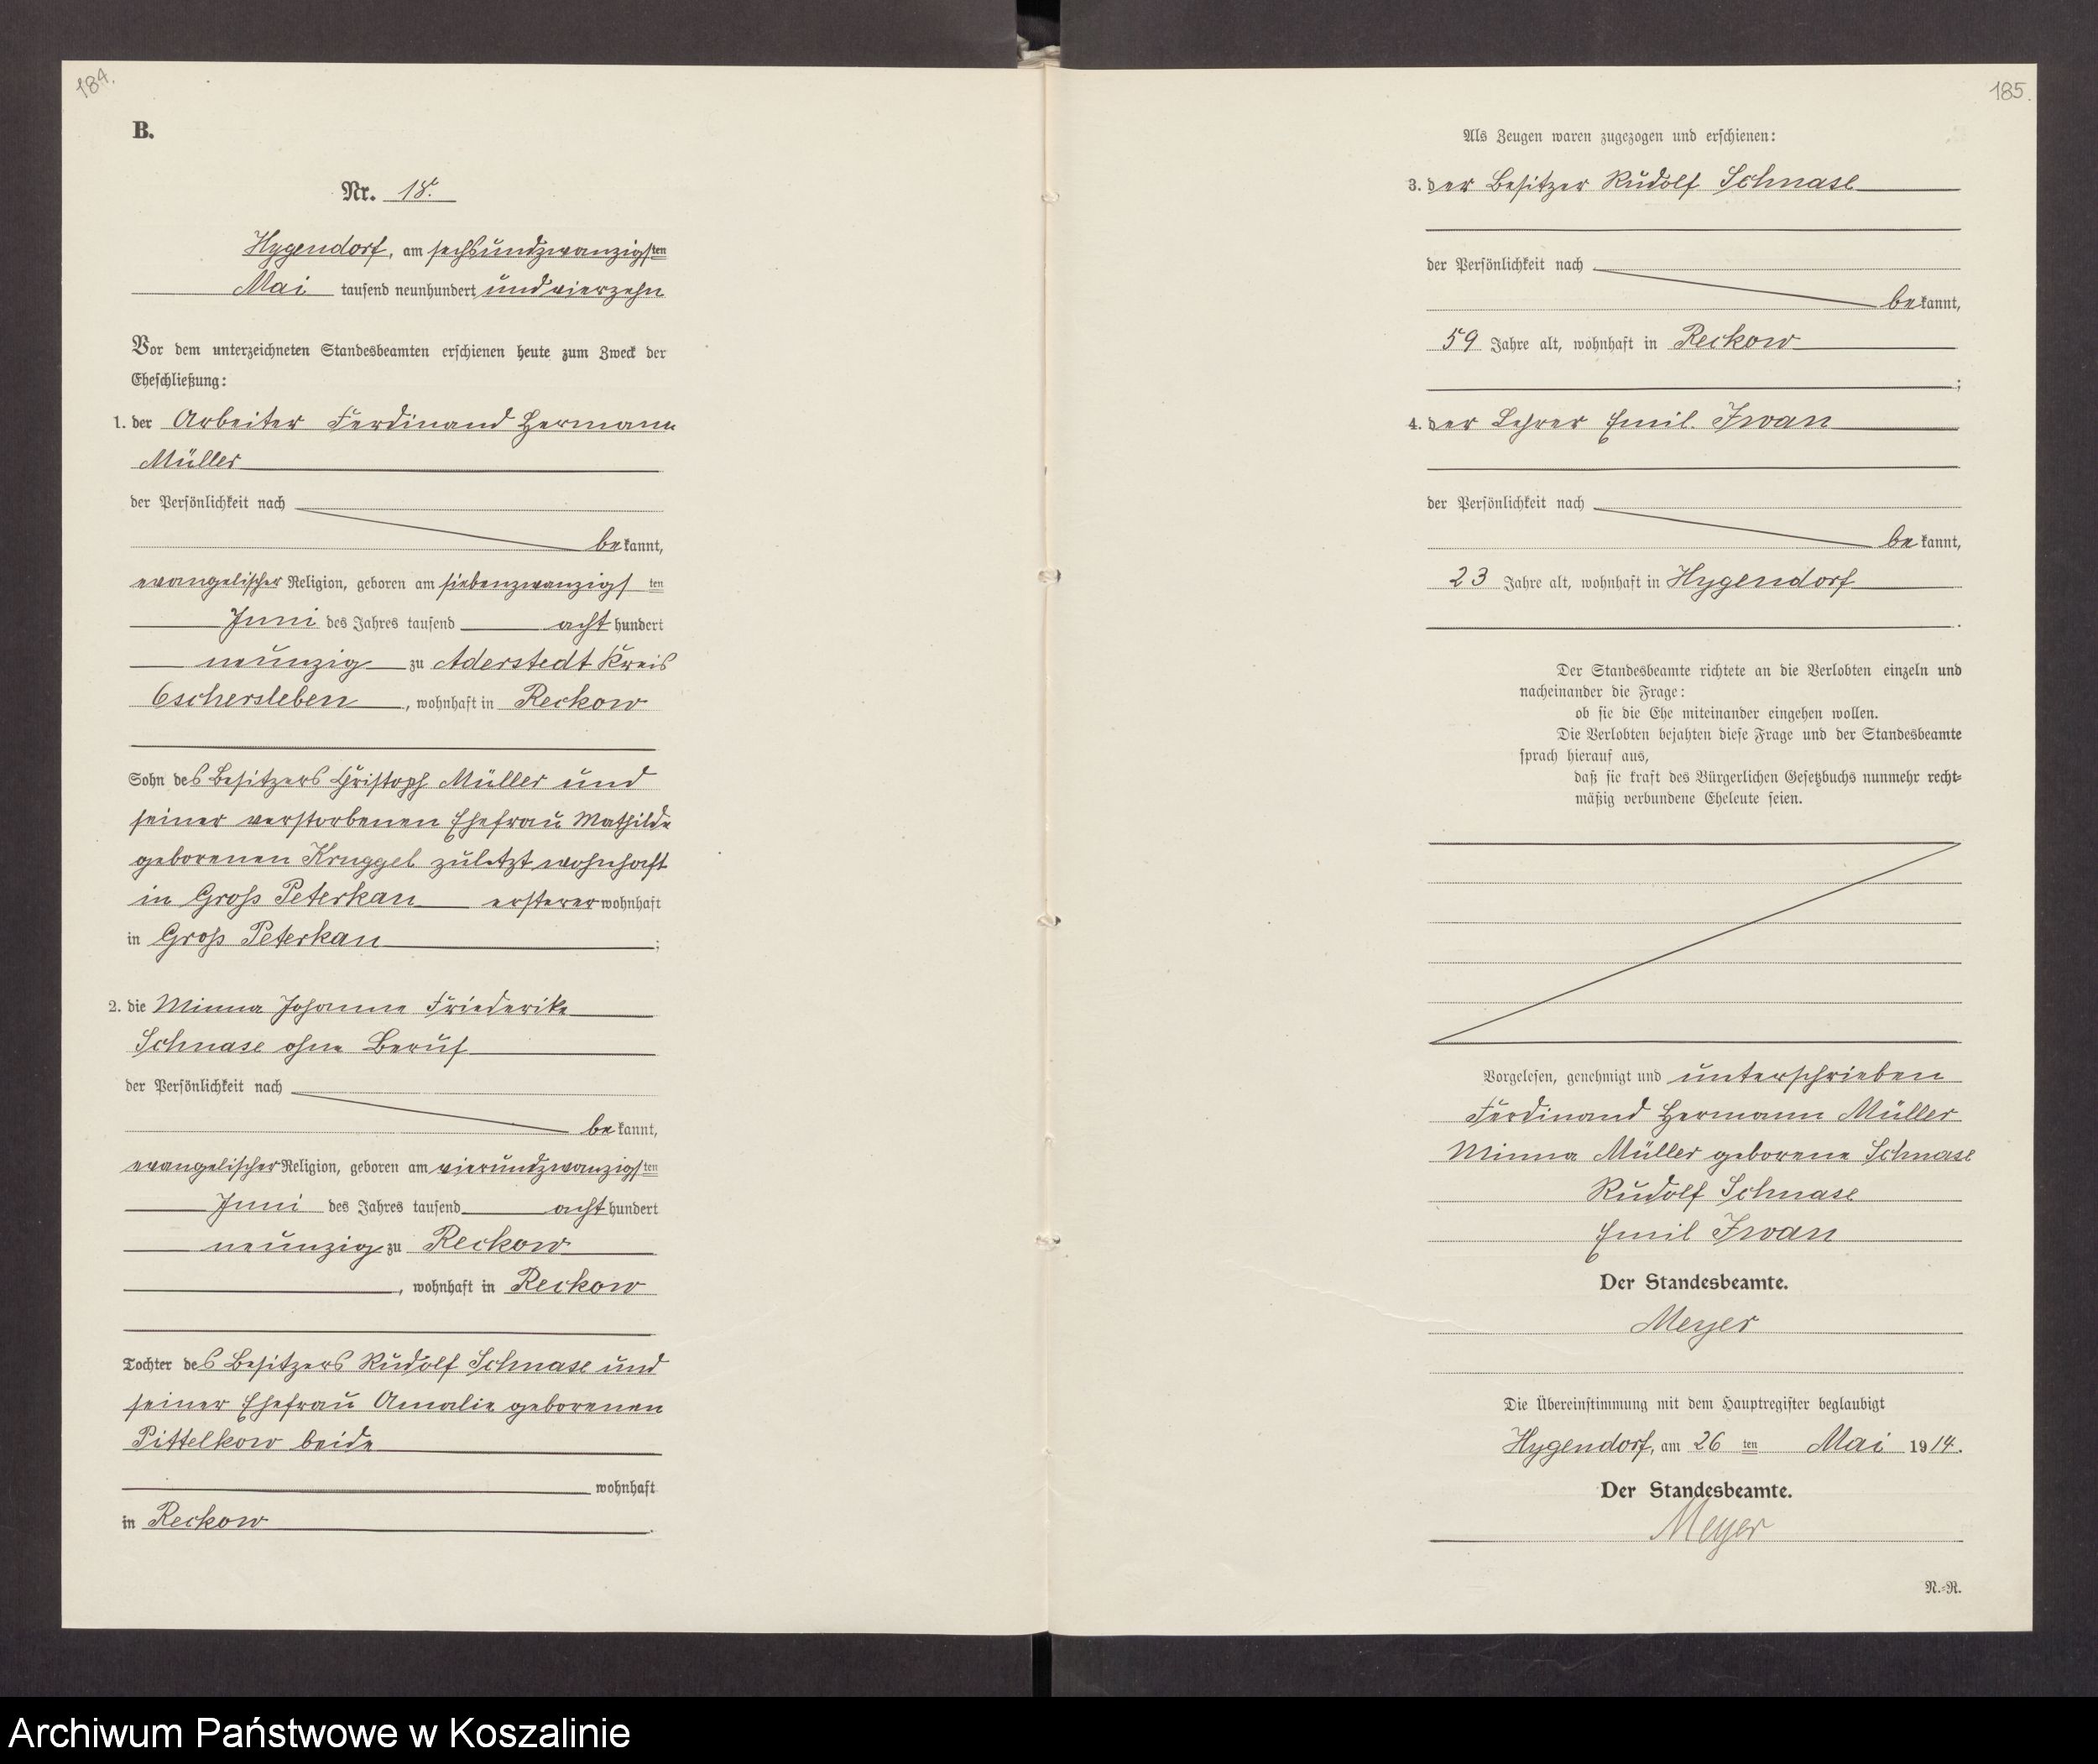 184.
B.
Nr. 18.
Hygendorf, am sechsundzwanzigsten
Mai tausend neunhundert und vierzehn
Vor dem unterzeichneten Standesbeamten erschienen heute zum Zweck der
Eheschließung:
1. der Arbeiter Ferdinand Hermann
Müller
der Persönlichkeit nach
bekannt,
evangelischer Religion, geboren am siebenzwanzigsten
Juni des Jahres tausend acht hundert
neunzig zu Aderstedt Kreis
Oschersleben, wohnhaft in Reckow
Sohn des Besitzers Christoph Müller und
seiner verstorbenen Ehefrau Mathilde
geborenen Kruggel zuletzt wohnhaft
in Gross Peterkau ersterer wohnhaft
in Gross Peterkau;
2. die Minna Johanne Friederike
Schnase ohne Beruf
der Persönlichkeit nach
bekannt,
evangelischer Religion, geboren am vierundzwanzigsten
Juni des Jahres tausend acht hundert
neunzig zu Reckow
, wohnhaft in Reckow
Tochter des Besitzers Rudolf Schnase und
seiner Ehefrau Amalie geborenen
Pittelkow beide
wohnhaft
in Reckow.
185.
Als Zeugen waren zugezogen und erschienen:
3. der Besitzer Rudolf Schnase
der Persönlichkeit nach
bekannt,
59 Jahre alt, wohnhaft in Reckow
;
4. der Lehrer Emil Iwan
der Persönlichkeit nach
bekannt,
23 Jahre alt, wohnhaft in Hygendorf
.
Der Standesbeamte richtete an die Verlobten einzeln und
nacheinander die Frage:
ob sie die Ehe miteinander eingehen wollen.
Die Verlobten bejahten diese Frage und der Standesbeamte
sprach hierauf aus,
daß sie kraft des Bürgerlichen Gesetzbuchs nunmehr recht-
mäßig verbundene Eheleute seien.
Vorgelesen, genehmigt und unterschrieben
Ferdinand Hermann Müller
Minna Müller geborene Schnase
Rudolf Schnase
Emil Iwan
Der Standesbeamte.
Meyer
Die Übereinstimmung mit dem Hauptregister beglaubigt
Hygendorf, am 26 ten Mai 1914.
Der Standesbeamte.
Meyer
N.-R.
Archiwum Państwowe w Koszalinie